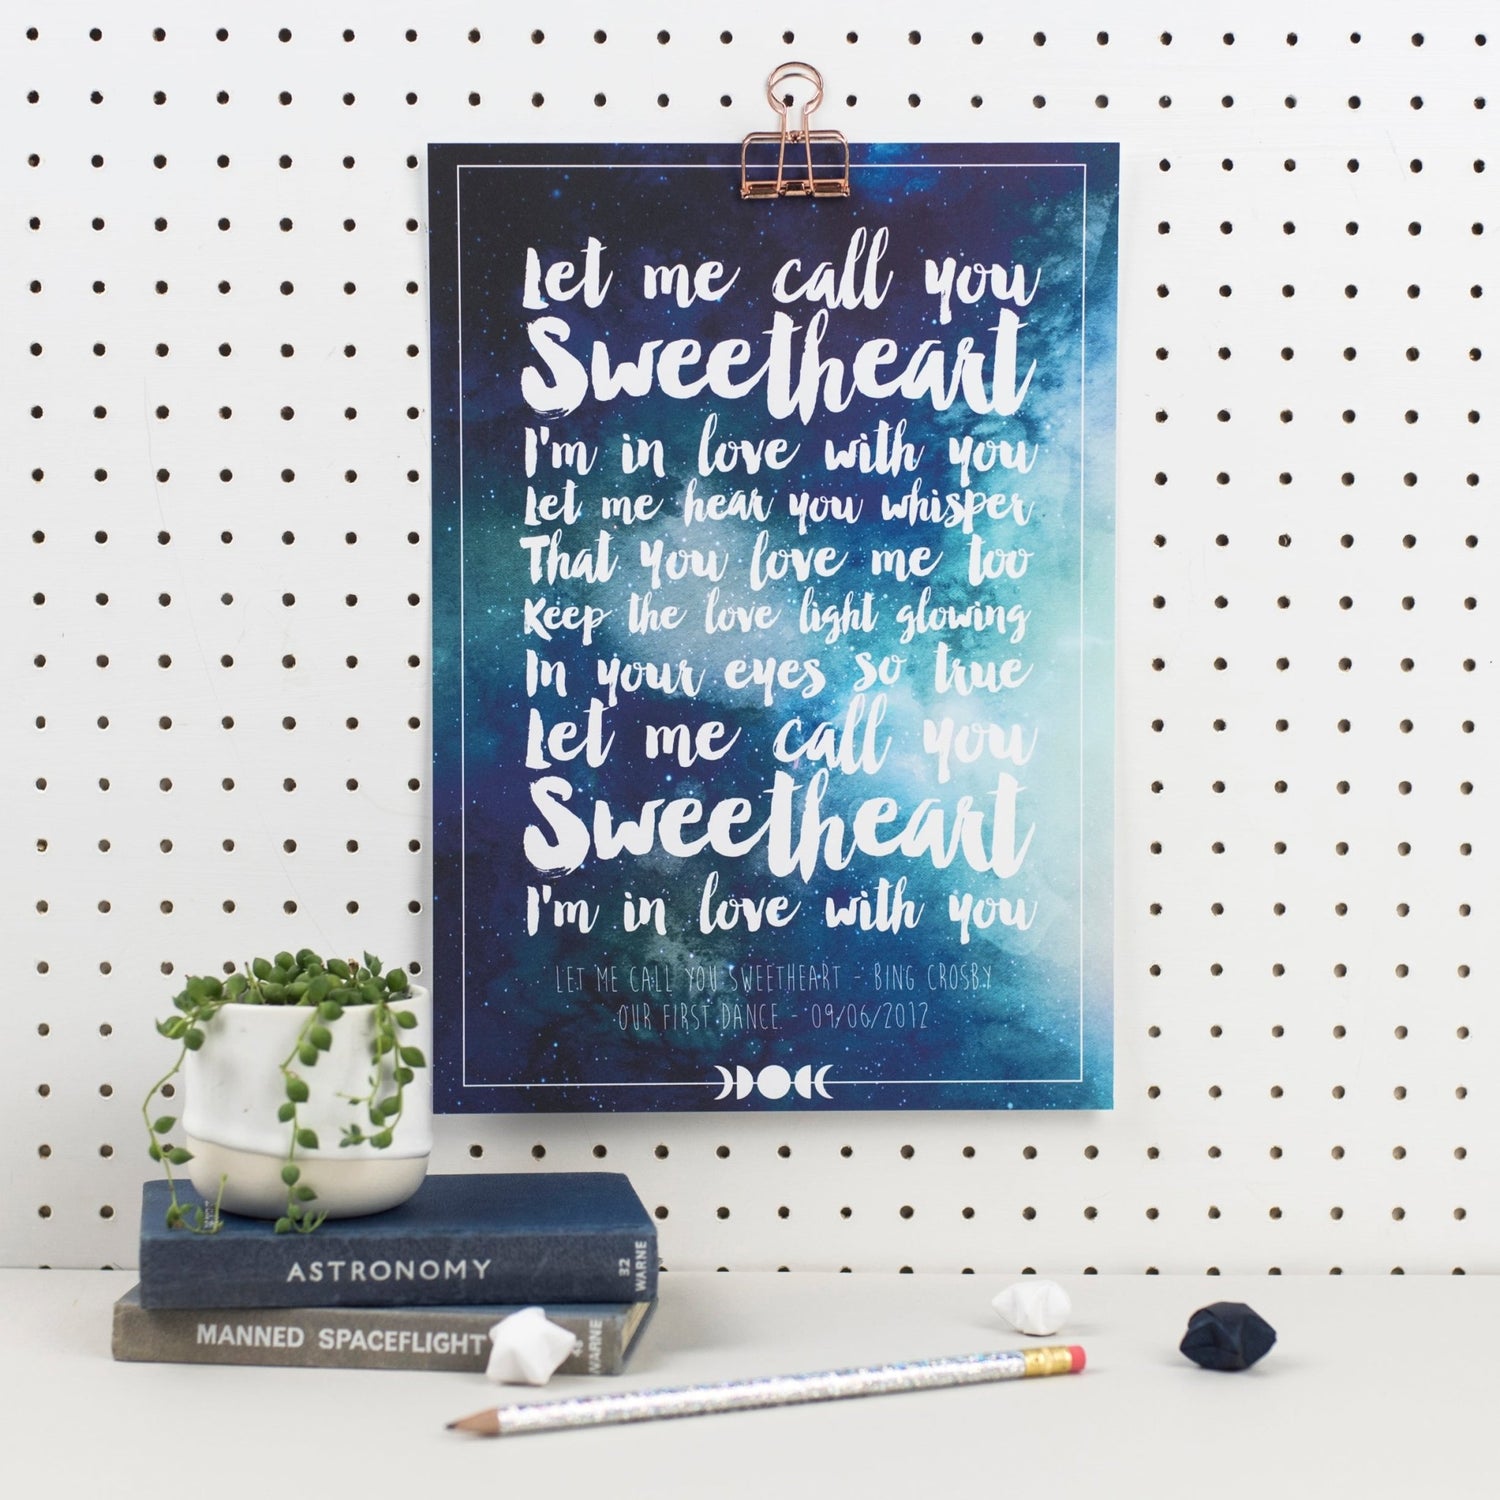 Let me call you
Sweetheart
I'm in love with you
Let me hear you whisper
That you love me too
Keep the love light glowing
In your eyes so true
Let me call you
Sweetheart
I'm in love with you
LET ME CALL YOU SWEETHEART - BING CROSBY
OUR FIRST DANCE - 09/06/2012
ASTRONOMY
32
WARNE
MANNED SPACEFLIGHT
43
WARNE